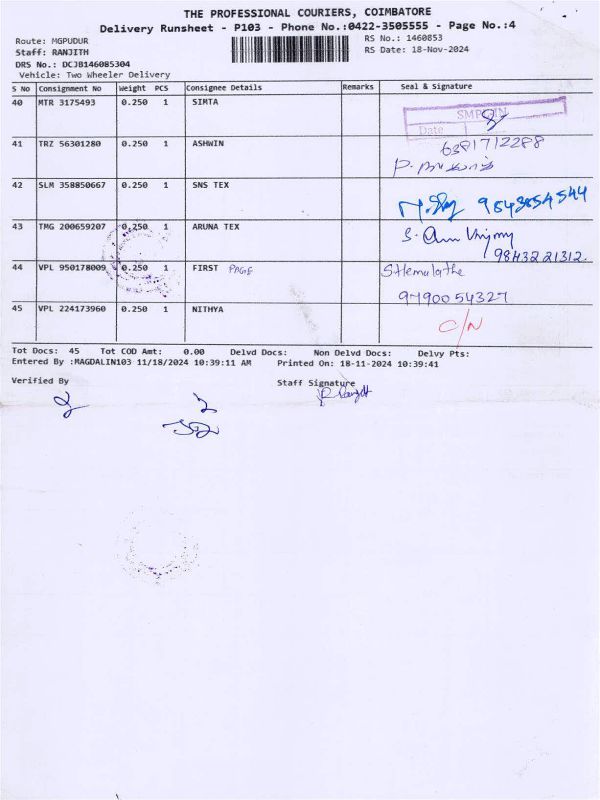 THE PROFESSIONAL COURIERS, COIMBATORE
Delivery Runsheet - P103 - Phone No.:0422-3505555 - Page No.:4
Route: MGPUDUR
RS No.: 1460853
Staff: RANJITH
RS Date: 18-Nov-2024
DRS No.: DCJB146085304
Vehicle: Two Wheeler Delivery
S No Consignment No Weight PCS Consignee Details Remarks Seal & Signature
40 MTR 3175493 0.250 1 SIMTA
Date
41 TRZ 56301280 0.250 1 ASHWIN 6381712288
42 SLM 358850667 0.250 1 SNS TEX
43 TMG 200659207 0.250 1 ARUNA TEX
9843221312.
44 VPL 950178009 0.250 1 FIRST PAGE SHemalathe
9790054327
45 VPL 224173960 0.250 1 NITHYA C/N
Tot Docs: 45 Tot COD Amt: 0.00 Delvd Docs: Non Delvd Docs: Delvy Pts:
Entered By :MAGDALIN103 11/18/2024 10:39:11 AM Printed On: 18-11-2024 10:39:41
Verified By
Staff Signature